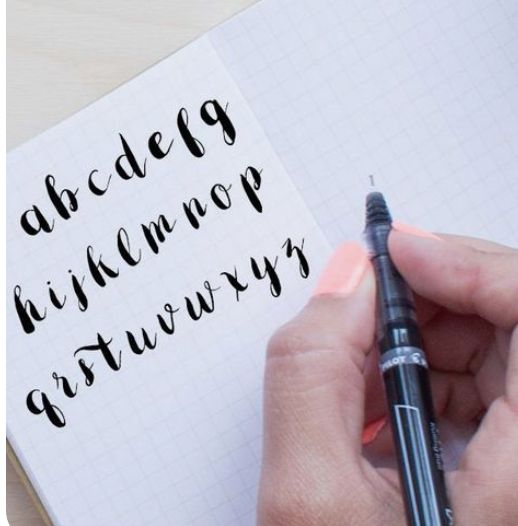 abcdefg
hijklmnop
qrstuvwxyz
PILOT